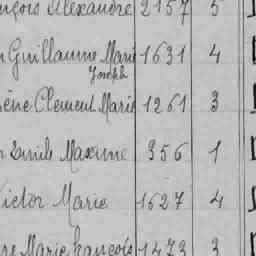 nçois Alexandre 2157 5
n Guillaume Marie 1631 4
Joseph
ène Clement Marie 1261 3
n Emile Maxime 956 1
Victor Marie 1627 4
rre Marie françois 1473 3